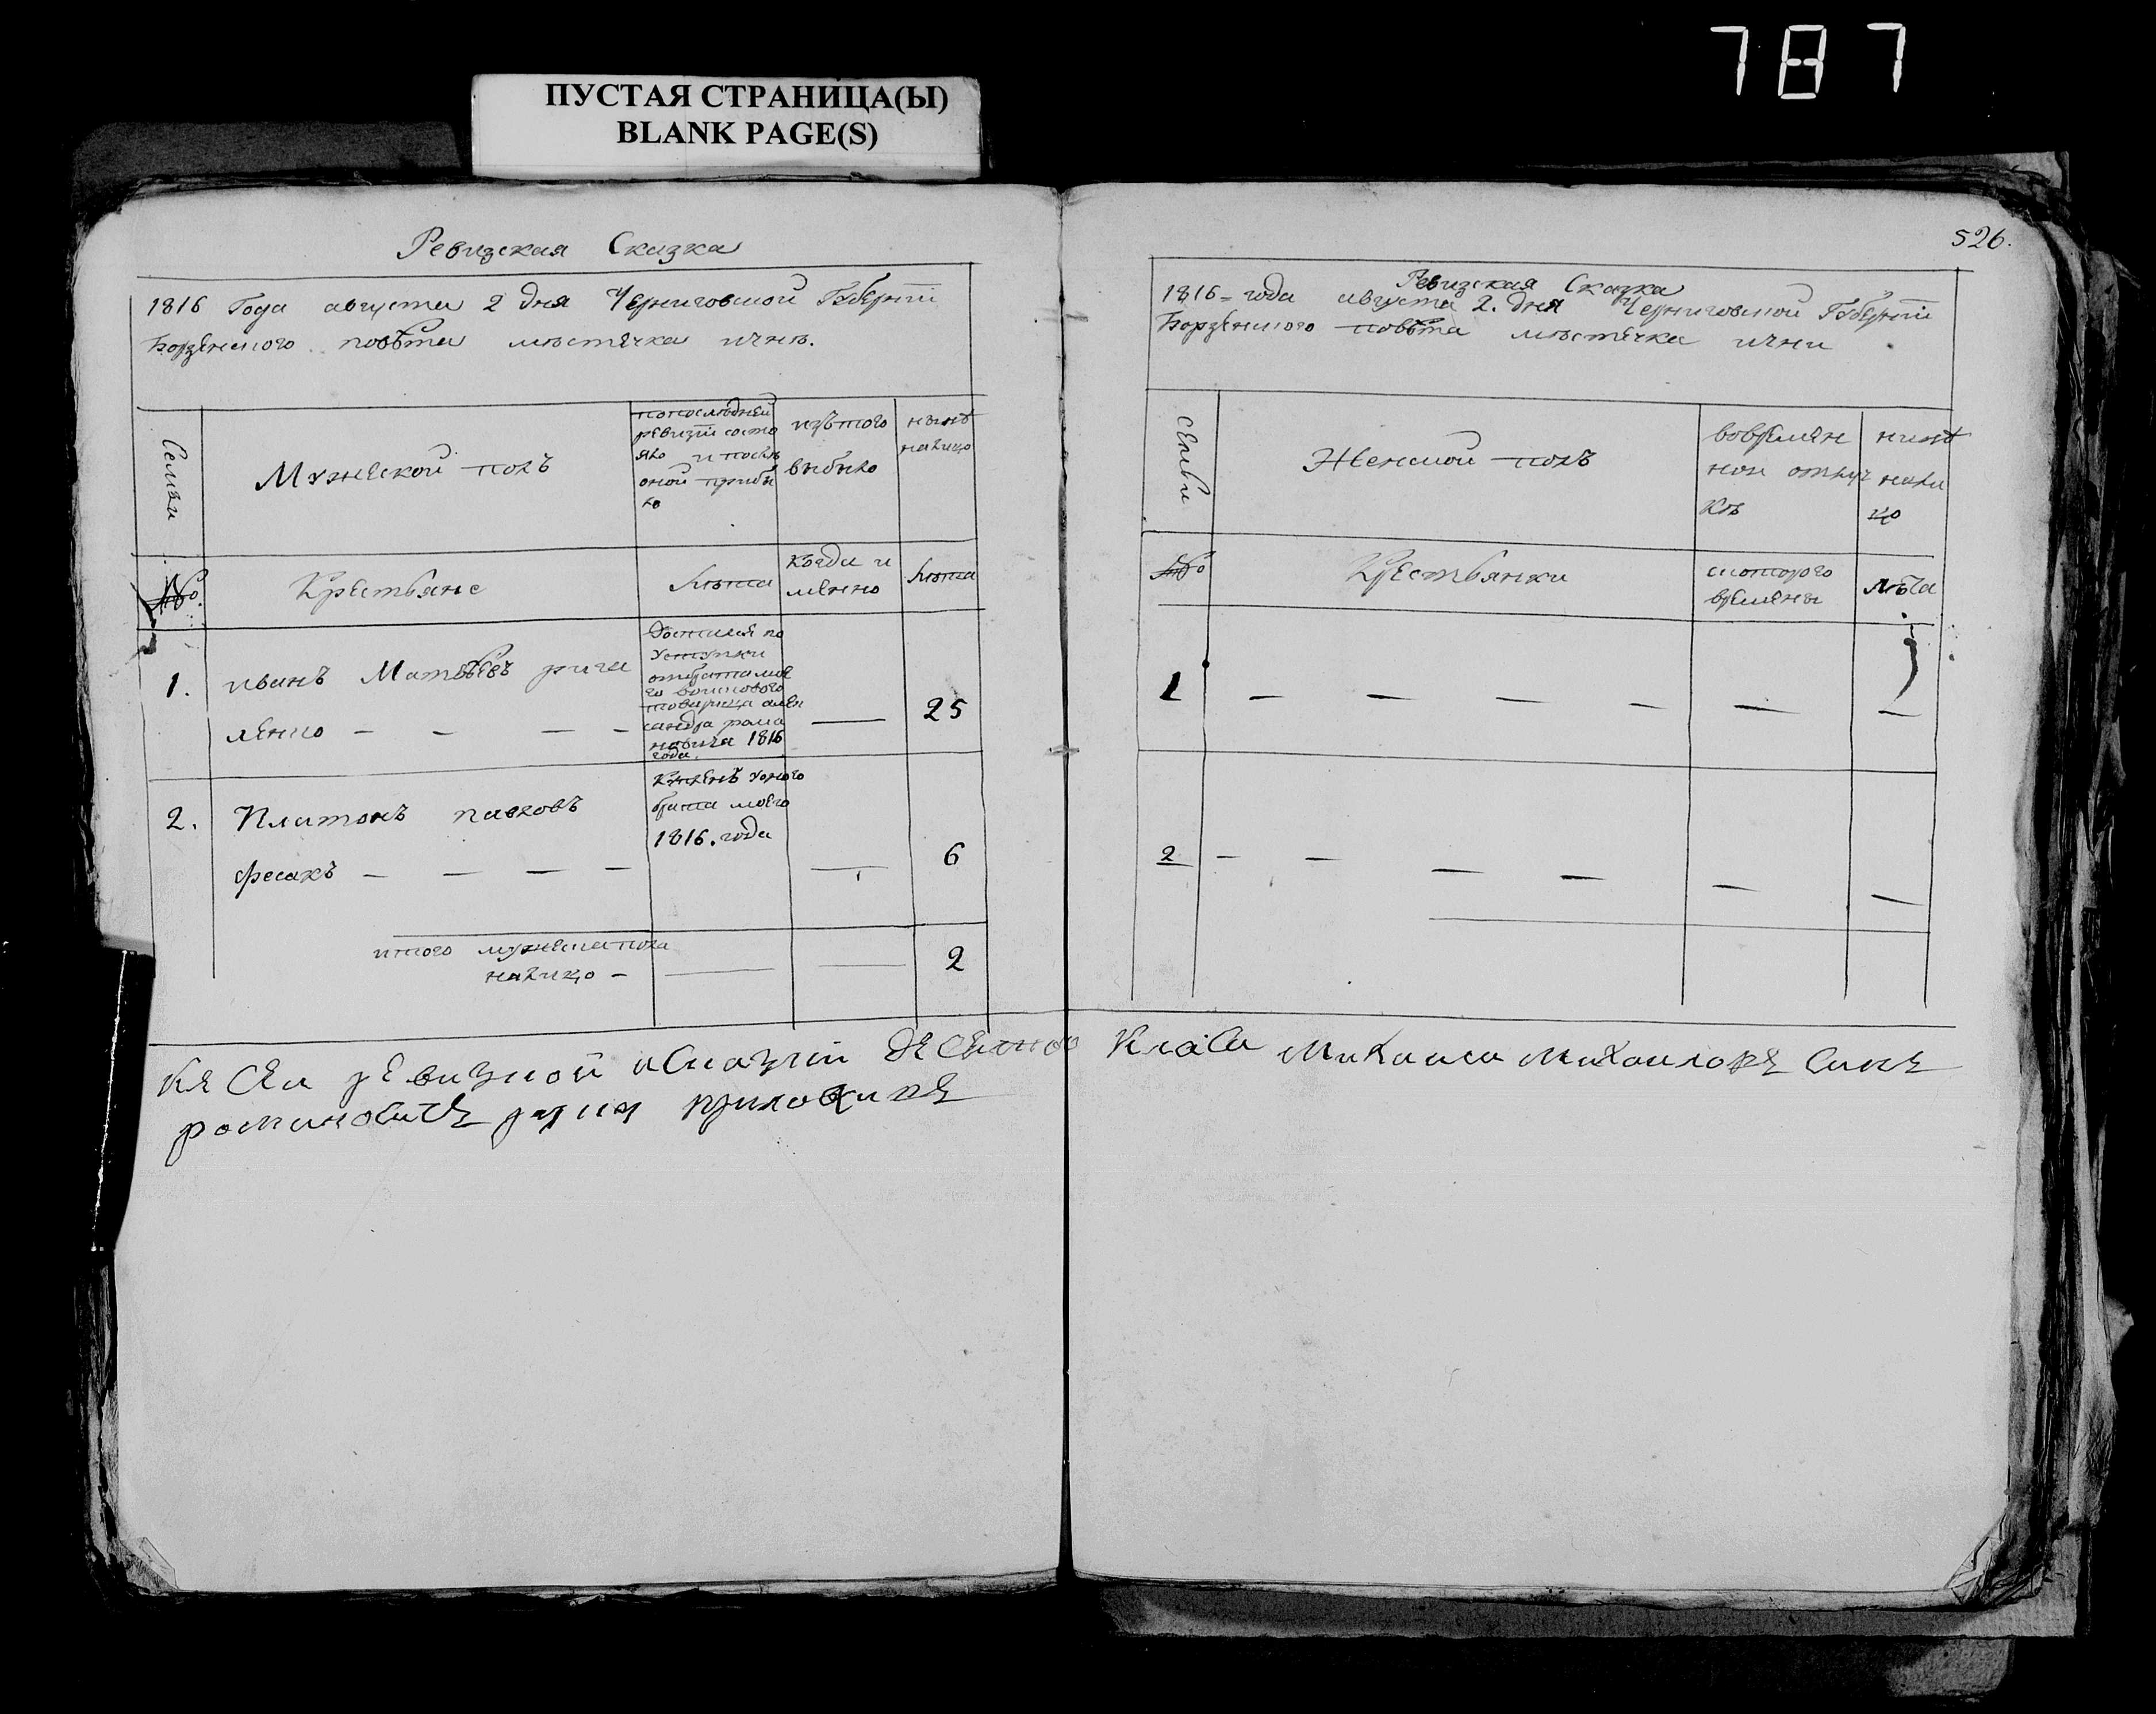 787
ПУСТАЯ СТРАНИЦА(Ы)
BLANK PAGE(S)
Ревизская Сказка
1816 Года августа 2 дня Черниговской Губернїи
Борзенского повѣта мѣстечка ичнѣ.
Семьи
Мужеской полъ
попослѣдней
ревизїи состо
яло и послѣ
оной прибы
ло
изътого
выбыло
нынѣ
налицо
№
Крестьяне
Лѣта
Когда и
мѣнно
Лѣта
1.
иванъ Матвѣевъ рича
ленко — — — —
Досталея по
уступки
отбрата мое
го воискового
товарища алек
сандра рома
новича 1816
года.
—
25
2.
Платонъ павловъ
фесакъ — — — —
Купленъ уоного
брата моего
1816. года
—
6
итого мужеска пола
налицо —
—
—
2
526.
Ревизская Сказка
1816 = года августа 2. дня Черниговской Губернїи
Борзенского повѣта мѣстечка ични
семьи
Женской полъ
вовремѣн
ной отлуч
кѣ
нинѣ
нали
цо
№
Крестьянки
скоторого
времѣны
лѣта
1 — — — — — —
2 — — — — — —
Ке Сеи ревизкой сказки Десятого Класа Михаилове Сине
романовиче руку приложиле